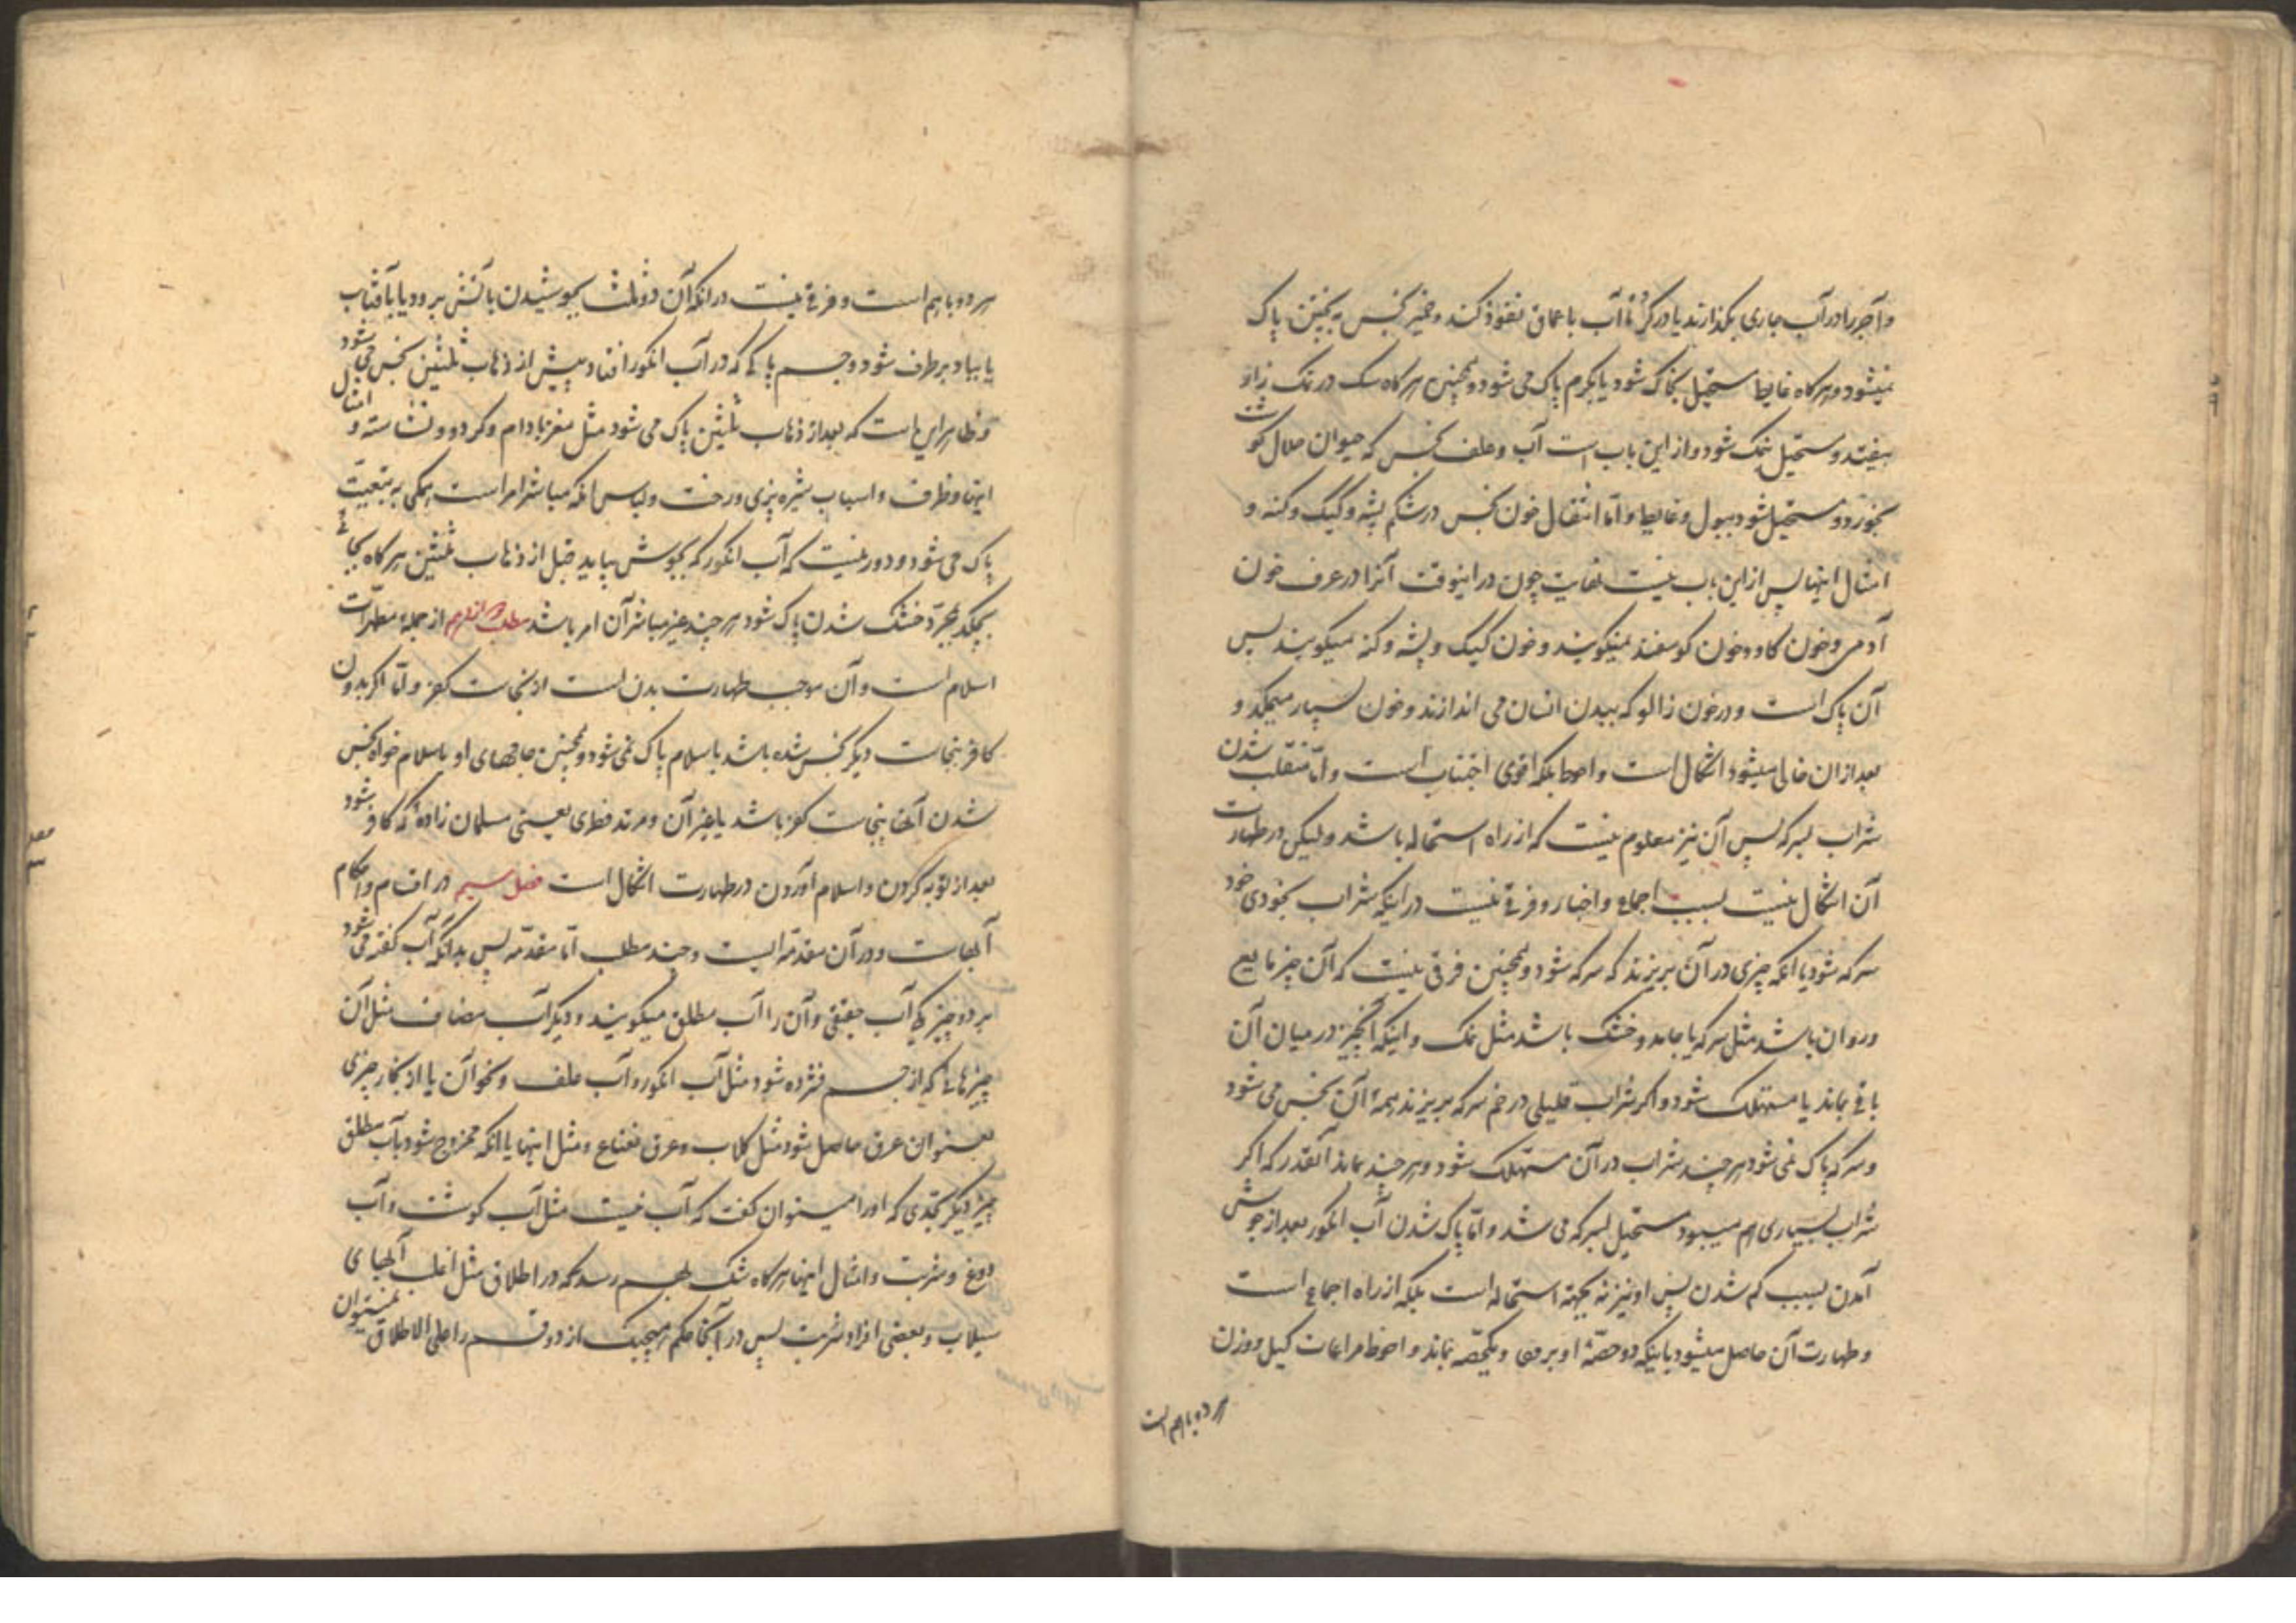 و آجر را در آب جاری بگذارند یا در کر تا آب باعماق نفوذ کند و خمیر نجس به پختن پاک
نمیشود و هرگاه غایط مستحیل بخاک شود یا بکرم پاک می شود و همچنین هرگاه سک در نمک زار
بیفتد و مستحیل بنمک شود و از این باب است آب و علف نجس که حیوان حلال گوشت
بخورد و مستحیل شود ببول و غایط و اما انتقال خون نجس در شکم پشه و کیک و کنه و
امثال اینها پس از این باب نیست بغایت چون در اینوقت آنرا در عرف خون
آدمی و خون کاو و خون کوسفند نمیکویند و خون کیک و پشه و کنه میکویند پس
آن پاک است و در خون زالو که ببدن انسان می اندازند و خون بسیار میمکد و
بعد از ان خالی میشود اشکال است و احوط بلکه اقوی اجتناب است و اما منقلب شدن
شراب بسرکه پس آن نیز معلوم نیست که از راه استحاله باشد و لیکن در طهارت
آن اشکال نیست بسبب اجماع و اخبار و فرقی نیست در اینکه شراب بخودی خود
سرکه شود یا انکه چیزی در آن بریزند که سرکه شود و همچنین فرقی نیست که آن چیز مایع
و روان باشد مثل سرکه یا جامد و خشک باشد مثل نمک و اینکه آنچیز در میان آن
باقی بماند یا مستهلک شود و اکر شراب قلیلی در خم سرکه بریزند همه آن نجس می شود
و سرکه پاک نمی شود هر چند شراب در آن مستهلک شود و هر چند بماند آنقدر که اکر
شراب بسیاری هم میبود مستحیل بسرکه می شد و اما پاک شدن آب انکور بعد از جوش
آمدن بسبب کم شدن پس او نیز نه بجهته استحاله است بلکه از راه اجماع است
و طهارت آن حاصل میشود باینکه دو حصه او برود و یکحصه بماند و احوط مراعات کیل و وزن
هر دو باهم است
هر دو باهم است و فرقی نیست در انکه آن دو ثلث بجوشیدن بآتش برود یا بآفتاب
یا بباد برطرف شود و جسم پاکی که در آب انکور افتاد پیش از ذهاب ثلثین نجس می شود
و ظاهر این است که بعد از ذهاب ثلثین پاک می شود مثل مغز بادام و کردو و نشاسته و امثال
اینها و ظرف و اسباب شیره پزی و رخت و لباس انکه مباشر امر است همکی به تبعیت
پاک می شود و دور نیست که آب انکور که بجوش بیاید قبل از ذهاب ثلثین هرگاه بجائی
بچکد بمجرد خشک شدن پاک شود هر چند غیر مباشر آن امر باشد مطلب از جمله مطهرات
اسلام است و آن موجب طهارت بدن است از نجاست کفر و اما اکر بدون
کافر بنجاست دیکر نجس شده باشد باسلام پاک نمی شود و همچنین جامهای او باسلام خواه نجس
شدن آنها بنجاست کفر باشد یا بغیر آن و مرتد فطری یعنی مسلمان زاده که کافر شود
بعد از توبه کردن و اسلام آوردن در طهارت اشکال است فصل سیم در اقسام و احکام
آبهاست و در آن مقدمه ایست و چند مطلب اما مقدمه پس بدانکه آب کفته می شود
بر دو چیز یکی آب حقیقی و آن را آب مطلق میکویند و دیکر آب مضاف مثل آن
چیزهائی که از جسم فشرده شود مثل آب انکور و آب علف و نحو آن یا از بخار چیزی
بعنوان عرق حاصل شود مثل کلاب و عرق نعناع و مثل اینها یا انکه ممزوج شود بآب مطلق
چیز دیکر بحدی که او را میتوان کفت که آب نیست مثل آب کوشت و آب
دوغ و شربت و امثال اینها هرگاه شک بهم رسد که در اطلاق مثل اغلب آبهای
سیلاب و بعضی افراد شربت پس در آنجا حکم هیچیک از دو قسم را علی الاطلاق نمیتوان